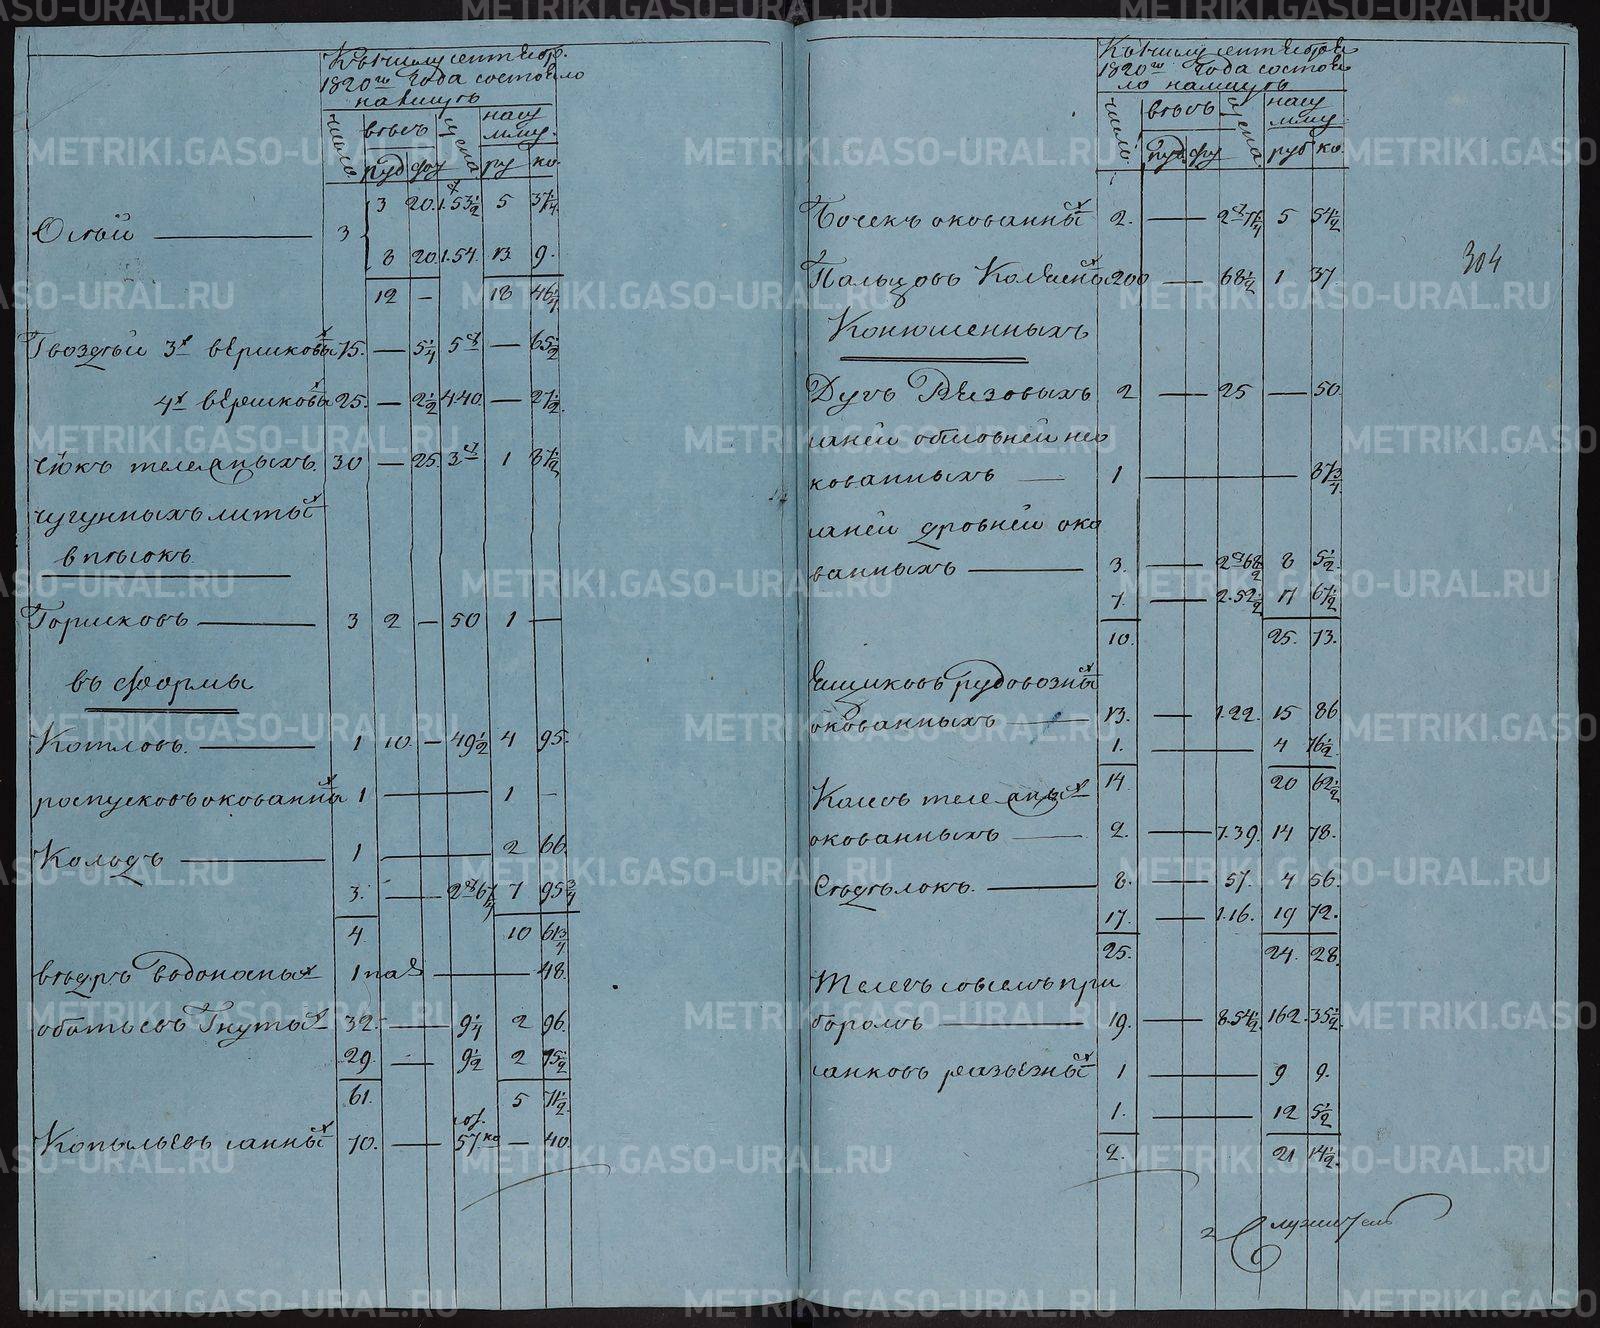 Къ 1 числу септебр.
1820го Года состояло
на лицуъ
число. вѣсъ цена на сумму.
пуд фу ру ко.
Осьй 3 3 20. 1.53½ 5 37¼
8 20. 1.54. 13 9.
12 — 18 46¼
Гвоздьй 3х вершковых 75. — 5¼ 5 — 65½
4х вершковых 25. — 2½ 4.40. — 27½
чюкъ тележныхъ 30 — 25. 3 1 87½
чугунныхъ литых
в пѣсокъ.
Горшковъ 3 2 — 50 1 —
въ формы
Котловъ. 1 10. — 49½ 4 95.
роспусковъ окованных 1 1 —
Колодъ 1 2 66.
3. 2 67¼ 7 95¾
4. 10 61¾
вѣдръ водоносных 1 48.
ободьевъ Гнутых 32. 9¼ 2 96.
29. 9½ 2 75½
61. 5 71½
Копыльевъ санных 70. 57 ко — 40.
Къ 1 числу септебря
1820го Года состоя
ло на лицуъ
число. вѣсъ цена на сумму.
пуд. фу руб ко.
Бочекъ окованных 2. 2 77¼ 5 54½
Пальцовъ Колесных 200 68½ 1 37.
Конюшенныхъ
Дугъ Вязовыхъ 2 25 — 50.
саней обшовней нео
кованныхъ 1 87¾
саней дровней око
ванныхъ 3. 2 68½ 8 5½.
7. 2.52½ 17 67½
10. 25. 73.
Ящиковъ рудовозных
окованныхъ 13. 1.22. 15 86
1. 4 76½.
14 20 62½
Колесъ тележных
окованныхъ 2. 7.39. 14 78.
Сѣдѣлокъ. 8. 57. 4 56.
17. 1.16. 19 72.
25. 24. 28.
Телегъ совсемъ при
боромъ 19. 8.54½ 162. 35½.
санковъ разъезных 1 9 9.
1. 12 5½
2. 21 14½.
304
служитель
METRIKI.GASO-URAL.RU